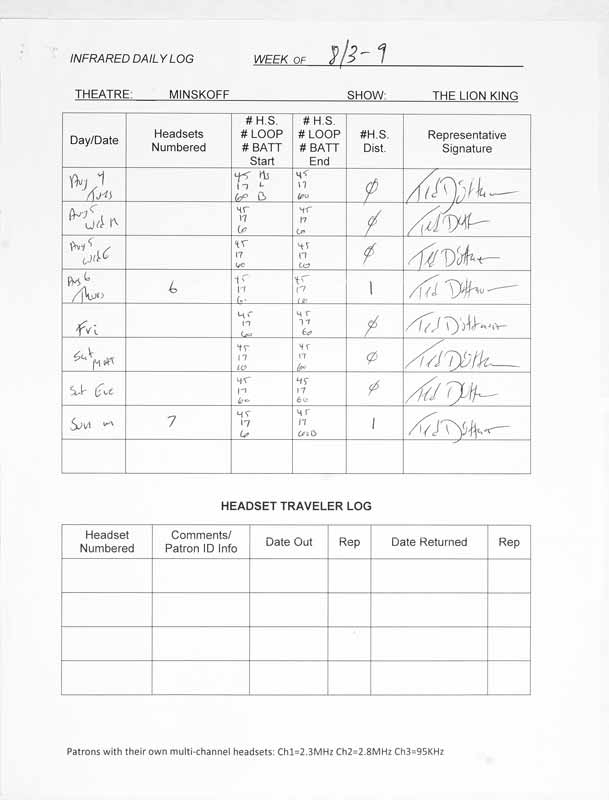 INFRARED DAILY LOG WEEK OF 8/3-9
THEATRE: MINSKOFF SHOW: THE LION KING
Day/Date Headsets Numbered # H.S. # LOOP # BATT Start # H.S. # LOOP # BATT End #H.S. Dist. Representative Signature
Aug 4 Tues 45 HS 17 L 60 B 45 17 60 ∅ Ted
Aug 5 Wed M 45 17 60 45 17 60 ∅ Ted
Aug 5 Wed E 45 17 60 45 17 60 ∅ Ted
Aug 6 Thurs 6 45 17 60 45 17 60 1 Ted
Fri 45 17 60 45 17 60 ∅ Ted
Sat Mat 45 17 60 45 17 60 ∅ Ted
Sat Eve 45 17 60 45 17 60 ∅ Ted
Sun m 7 45 17 60 45 17 60B 1 Ted
HEADSET TRAVELER LOG
Headset Numbered Comments/ Patron ID Info Date Out Rep Date Returned Rep
Patrons with their own multi-channel headsets: Ch1=2.3MHz Ch2=2.8MHz Ch3=95KHz